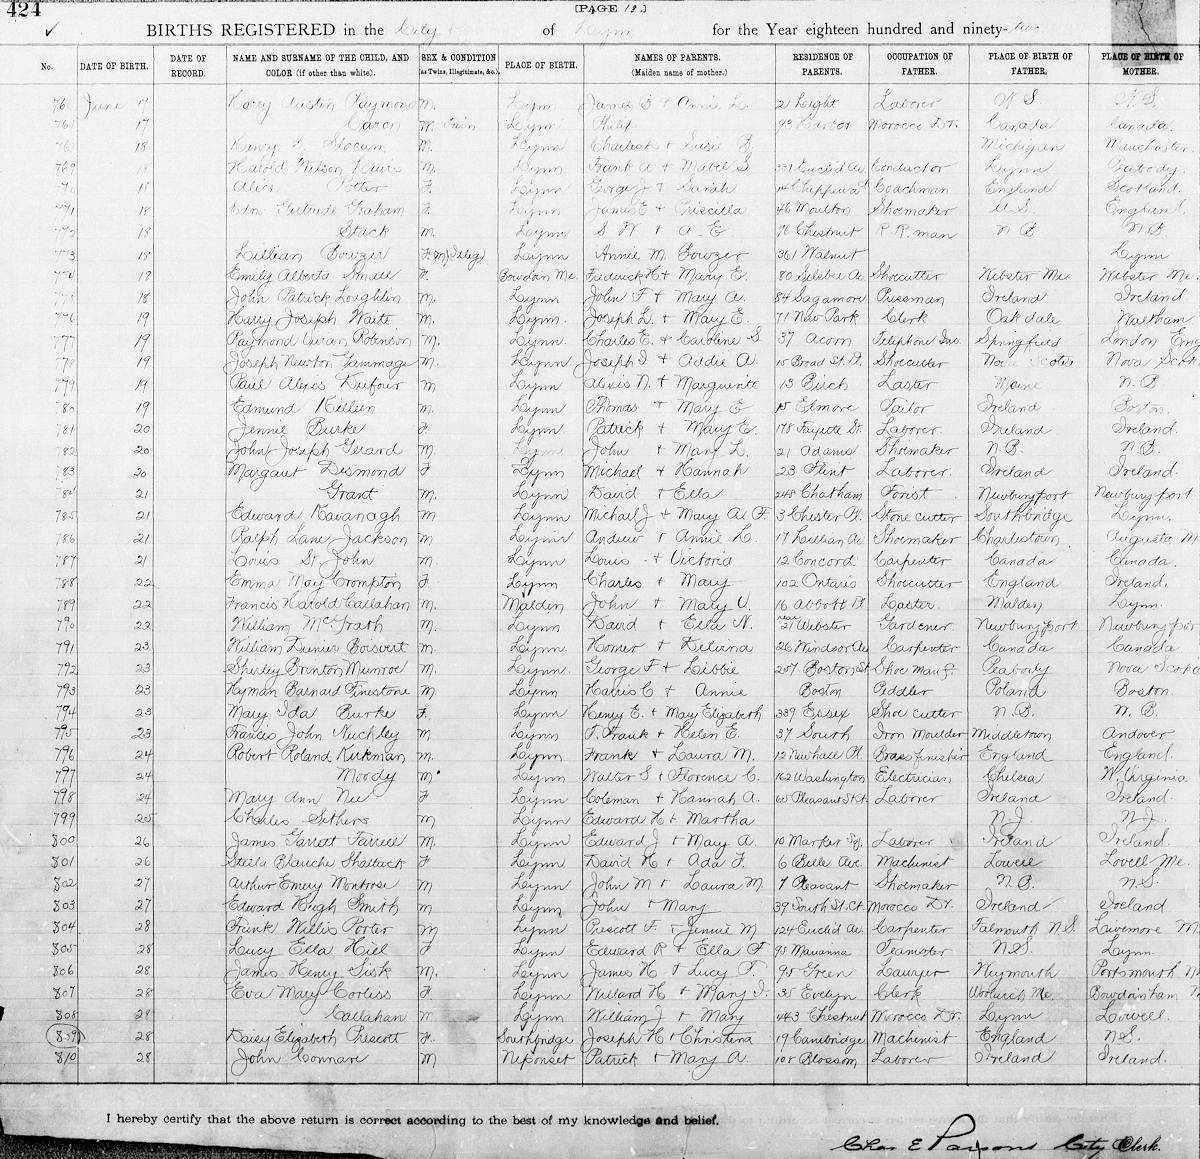 424
[PAGE 18.]
✓ BIRTHS REGISTERED in the City of Lynn for the Year eighteen hundred and ninety-two
No. DATE OF BIRTH. DATE OF RECORD. NAME AND SURNAME OF THE CHILD, AND COLOR (if other than white). SEX & CONDITION (as Twins, Illegitimate, &c.). PLACE OF BIRTH. NAMES OF PARENTS. (Maiden name of mother.) RESIDENCE OF PARENTS. OCCUPATION OF FATHER. PLACE OF BIRTH OF FATHER, PLACE OF BIRTH OF MOTHER.
June 17 Harry Austin Raymond M. Lynn James B + Annie L. 21 Light Laborer N.S. N.S.
17 Caron M. Twin Lynn Philip 93 Morocco Dr. Canada Canada.
18 Henry Slocum M. Lynn Charles + Susie B. Michigan Manchester.
769 18 Harold Wilson Lewis M. Lynn Frank A + Mabel S 331 Euclid Av Conductor Lynn Peabody.
770 18 Alice Potter F. Lynn George J + Sarah 14 Chippewa Coachman England Scotland.
771 18 Gertrude Graham F. Lynn James E + Priscilla 46 Moulton Shoemaker U.S. England.
772 18 Stack M. Lynn S W + A E 76 Chestnut R.R. man N B N.B.
773 18 Lillian Bowzer F (M) Illeg Lynn Annie M. Bowzer 361 Walnut Lynn
774 18 Emily Alberta Small F. Bowdon Me. Frederick H + Mary E. 80 Silsbee Av. Shoecutter Webster Me Webster Me
775 18 John Patrick Loughlin M. Lynn John F + Mary A. 84 Sagamore Pressman Ireland Ireland
776 19 Harry Joseph Waite M. Lynn. Joseph L. + Mary E. 71 New Park Clerk Oakdale Waltham
777 19 Raymond Owan Robinson M. Lynn. Charles E. + Caroline S. 37 Acorn Telephone Ins. Springfield London Eng
778 19 Joseph Newton Gammage M. Lynn Joseph I + Addie A 15 Broad St. Pl. Shoecutter Nova Scotia Nova Scoti
779 19 Paul Alexis Dufour M Lynn Alexis N. + Marguerite 13 Birch Laster Maine N.B
780 19 Edmund Killien M. Lynn Thomas + Mary E 15 Elmore Tailor Ireland Boston.
781 20 Jennie Burke F Lynn Patrick + Mary E. 178 Fayette St. Laborer. Ireland Ireland.
782 20 John Joseph Girard M. Lynn John + Mary L. 21 Adams Shoemaker N.B. N.B.
783 20 Margaret Desmond F Lynn Michael + Hannah 23 Flint Laborer. Ireland Ireland.
784 21 Grant M. Lynn David + Ella 248 Chatham Forist Newburyport Newburyport
785 21 Edward Kavanagh M Lynn Michael J + Mary A. F. 3 Chester Pl. Stone cutter Southbridge Lynn
786 21 Ralph Lane Jackson M. Lynn Andrew + Annie L. 17 Lillian Av Shoemaker Charlestown Augusta M
787 21 Louis St John M. Lynn Louis + Victoria 12 Concord. Carpenter Canada Canada.
788 22 Emma May Crompton F. Lynn Charles + Mary 102 Ontario Shoecutter England Ireland.
789 22 Francis Harold Callahan M. Malden John + Mary V. 16 Abbott Pl Laster. Malden Lynn.
790 22 William McGrath M. Lynn David + Ella N. rear 21 Webster Gardener. Newburyport Newburypor
791 23 William Boisvert M. Lynn Homer + Delvina 26 Windsor Av Carpenter Canada Canada
792 23 Shirley Brinton Munroe M. Lynn. George F + Libbie 257 Boston St Shoe Manf. Peabody Nova Scotia
793 23 Hyman Barnard Finestone M. Lynn Harris C + Annie Boston Peddler Poland Boston.
794 23 Mary Ida Burke F. Lynn Henry E. + Mary Elizabeth 339 Essex Shoe cutter N.B. N.B.
795 23 Francis John Nuckley M. Lynn T. Frank + Helen E. 37 South Iron Moulder Middletown Andover
796 24 Robert Roland Kirkman M. Lynn Frank + Laura M. 12 Newhall Pl. Brass finisher England England.
797 24 Moody M. Lynn Walter S + Florence C. 162 Washington Electrician Chelsea W. Virginia
798 24 Mary Ann Nee F Lynn Coleman + Hannah A. 60 Pleasant St Ct. Laborer Ireland Ireland.
799 25 Charles Sithers M Lynn Edward H + Martha N J N.J.
800 26 James Garrett Farrell M. Lynn Edward J + Mary A. 10 Market Sq. Laborer Ireland Ireland.
801 26 Stella Blanche Shattuck F Lynn David H + Ada F. 6 Belle Ave. Machinist Lowell Lovell Me.
802 27 Arthur Emery Montrose M Lynn John M + Laura M. 7 Pleasant Shoemaker N.B. N.S.
803 27 Edward Hugh Smith M Lynn John + Mary 39 South St. Ct. Morocco Dr. Ireland Ireland
804 28 Frank Willis Porter M Lynn Prescott F. + Jennie M 124 Euclid Av. Carpenter Falmouth N.S. Livermore M
805 28 Lucy Ella Hill F Lynn Edward R + Ella F. 95 Marianna Teamster N.S. Lynn.
806 28 James Henry Sisk M. Lynn James H + Lucy T. 95 Green Lawyer Weymouth Portsmouth N
807 28 Eva Mary Corliss F Lynn Willard H + Mary J. 35 Evelyn Clerk Woolwich Me. Bowdoinham M
808 28 Callahan M Lynn William J + Mary 443 Chestnut Morocco Dr. Lynn Lowell.
809 28 Daisy Elizabeth Prescott F. Southbridge Joseph H + Christena 19 Cambridge Machinist England N.S.
810 28 John Connare M Neponset Patrick + Mary A. 101 Blossom Laborer Ireland Ireland.
I hereby certify that the above return is correct according to the best of my knowledge and belief.
Chas E Parsons City Clerk.